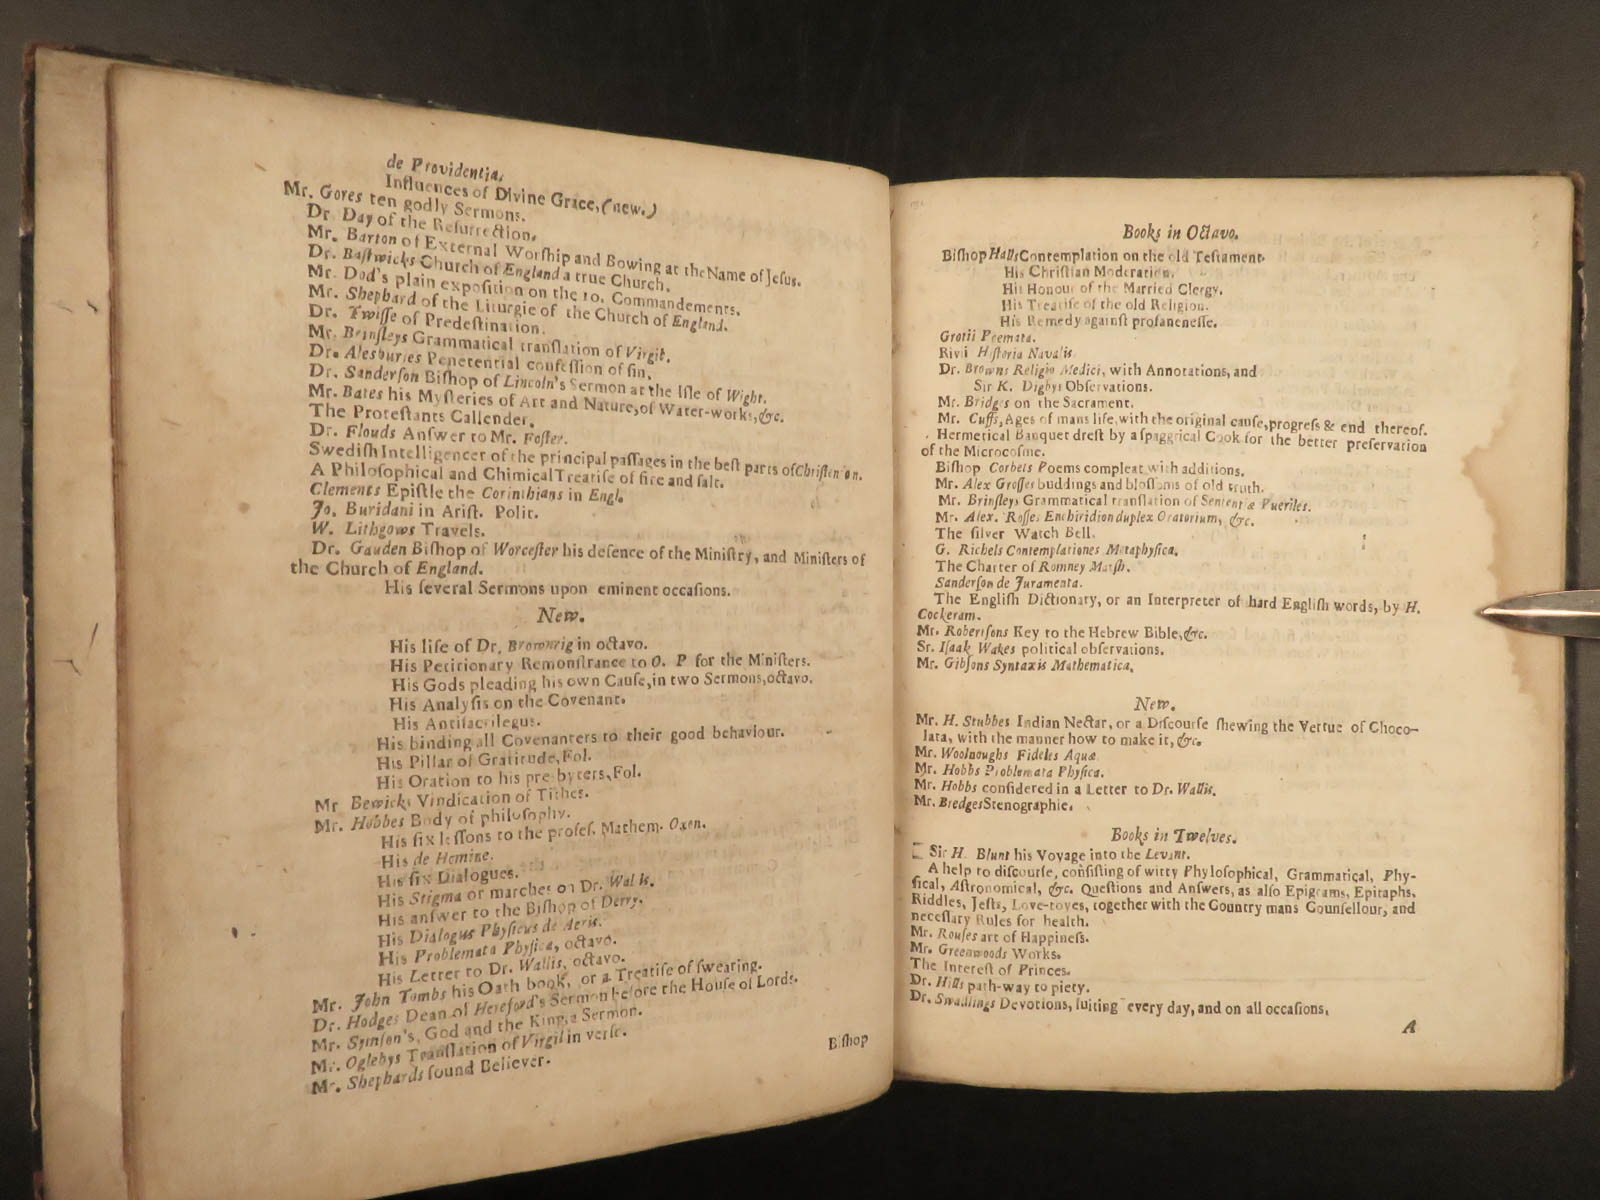 de Providentia.
Influences of Divine Grace, (new.)
Mr. Gores ten godly Sermons.
Dr. Day of the Resurrection.
Mr. Barton of External Worſhip and Bowing at the Name of Jeſus.
Dr. Baſtwicks Church of England a true Church.
Mr. Dod's plain expoſition on the 10. Commandements.
Mr. Shephard of the Liturgie of the Church of England.
Dr. Twiſſe of Predeſtination.
Mr. Brinſleys Grammatical tranſlation of Virgil.
Dr. Alesburies Penetential confeſſion of ſin.
Dr. Sanderſon Biſhop of Lincoln's Sermon at the Iſle of Wight.
Mr. Bates his Myſteries of Art and Nature, of Water-works, &c.
The Proteſtants Callender.
Dr. Flouds Anſwer to Mr. Foſter.
Swediſh Intelligencer of the principal paſſages in the beſt parts of
A Philoſophical and Chimical Treatiſe of fire and ſalt.
Clements Epiſtle the Corinthians in Engl.
Jo. Buridani in Ariſt. Polit.
W. Lithgows Travels.
Dr. Gauden Biſhop of Worceſter his defence of the Miniſtry, and Miniſters of
the Church of England.
His ſeveral Sermons upon eminent occaſions.
New.
His life of Dr. Brownrig in octavo.
His Petitionary Remonſtrance to O. P for the Miniſters.
His Gods pleading his own Cauſe, in two Sermons, octavo.
His Analyſis on the Covenant.
His Antiſacrilegus.
His binding all Covenanters to their good behaviour.
His Pillar of Gratitude, Fol.
His Oration to his presbyters, Fol.
Mr Bewicks Vindication of Tithes.
Mr. Hobbes Body of philoſophy.
His ſix leſſons to the profeſ. Mathem. Oxon.
His de Homine.
His ſix Dialogues.
His Stigma or marches on Dr. Wallis.
His anſwer to the Biſhop of Derry.
His Dialogus Phyſicus de Aeris.
His Problemata Phyſica, octavo.
His Letter to Dr. Wallis, octavo.
Mr. John Tombs his Oath book, or a Treatiſe of ſwearing.
Dr. Hodges Dean of Hereford's Sermon before the Houſe of Lords.
Mr. Symſon's, God and the King, a Sermon.
Mr. Oglebys Tranſlation of Virgil in verſe.
Mr. Shephards ſound Believer.
Biſhop
Books in Octavo.
Biſhop Halls Contemplation on the old Teſtament.
His Chriſtian Moderation.
His Honour of the Married Clergy.
His Treatiſe of the old Religion.
His Remedy againſt profaneneſſe.
Grotii Poemata.
Rivii Hiſtoria Navalis.
Dr. Browns Religio Medici, with Annotations, and
Sir K. Digbys Obſervations.
Mr. Bridges on the Sacrament.
Mr. Cuffs, Ages of mans life, with the original cauſe, progreſs & end thereof.
Hermetical Banquet dreſt by a ſpaggrical Cook for the better preſervation
of the Microcoſme.
Biſhop Corbets Poems compleat with additions.
Mr. Alex Groſſes buddings and bloſſoms of old truth.
Mr. Brinſleys Grammatical tranſlation of Sententiæ Pueriles.
Mr. Alex. Roſſes Enchiridion duplex Oratorium, &c.
The ſilver Watch Bell.
G. Richels Contemplationes Metaphyſica.
The Charter of Romney Marſh.
Sanderſon de Juramenta.
The Engliſh Dictionary, or an Interpreter of hard Engliſh words, by H.
Cockeram.
Mr. Robertſons Key to the Hebrew Bible, &c.
Sr. Iſaak Wakes political obſervations.
Mr. Gibſons Syntaxis Mathematica.
New.
Mr. H. Stubbes Indian Nectar, or a Diſcourſe ſhewing the Vertue of Choco-
lata, with the manner how to make it, &c.
Mr. Woolnoughs Fideles Aquæ
Mr. Hobbs Problemata Phyſica.
Mr. Hobbs conſidered in a Letter to Dr. Wallis.
Mr. Bredges Stenographie.
Books in Twelves.
Sir H. Blunt his Voyage into the Levant.
A help to diſcourſe, conſiſting of witty Phyloſophical, Grammatical, Phy-
ſical, Aſtronomical, &c. Queſtions and Anſwers, as alſo Epigrams, Epitaphs,
Riddles, Jeſts, Love-toyes, together with the Country mans Counſellour, and
neceſſary Rules for health.
Mr. Rouſes art of Happineſs.
Mr. Greenwoods Works.
The Intereſt of Princes.
Dr. Hills path-way to piety.
Dr. Swadlings Devotions, ſuiting every day, and on all occaſions.
A